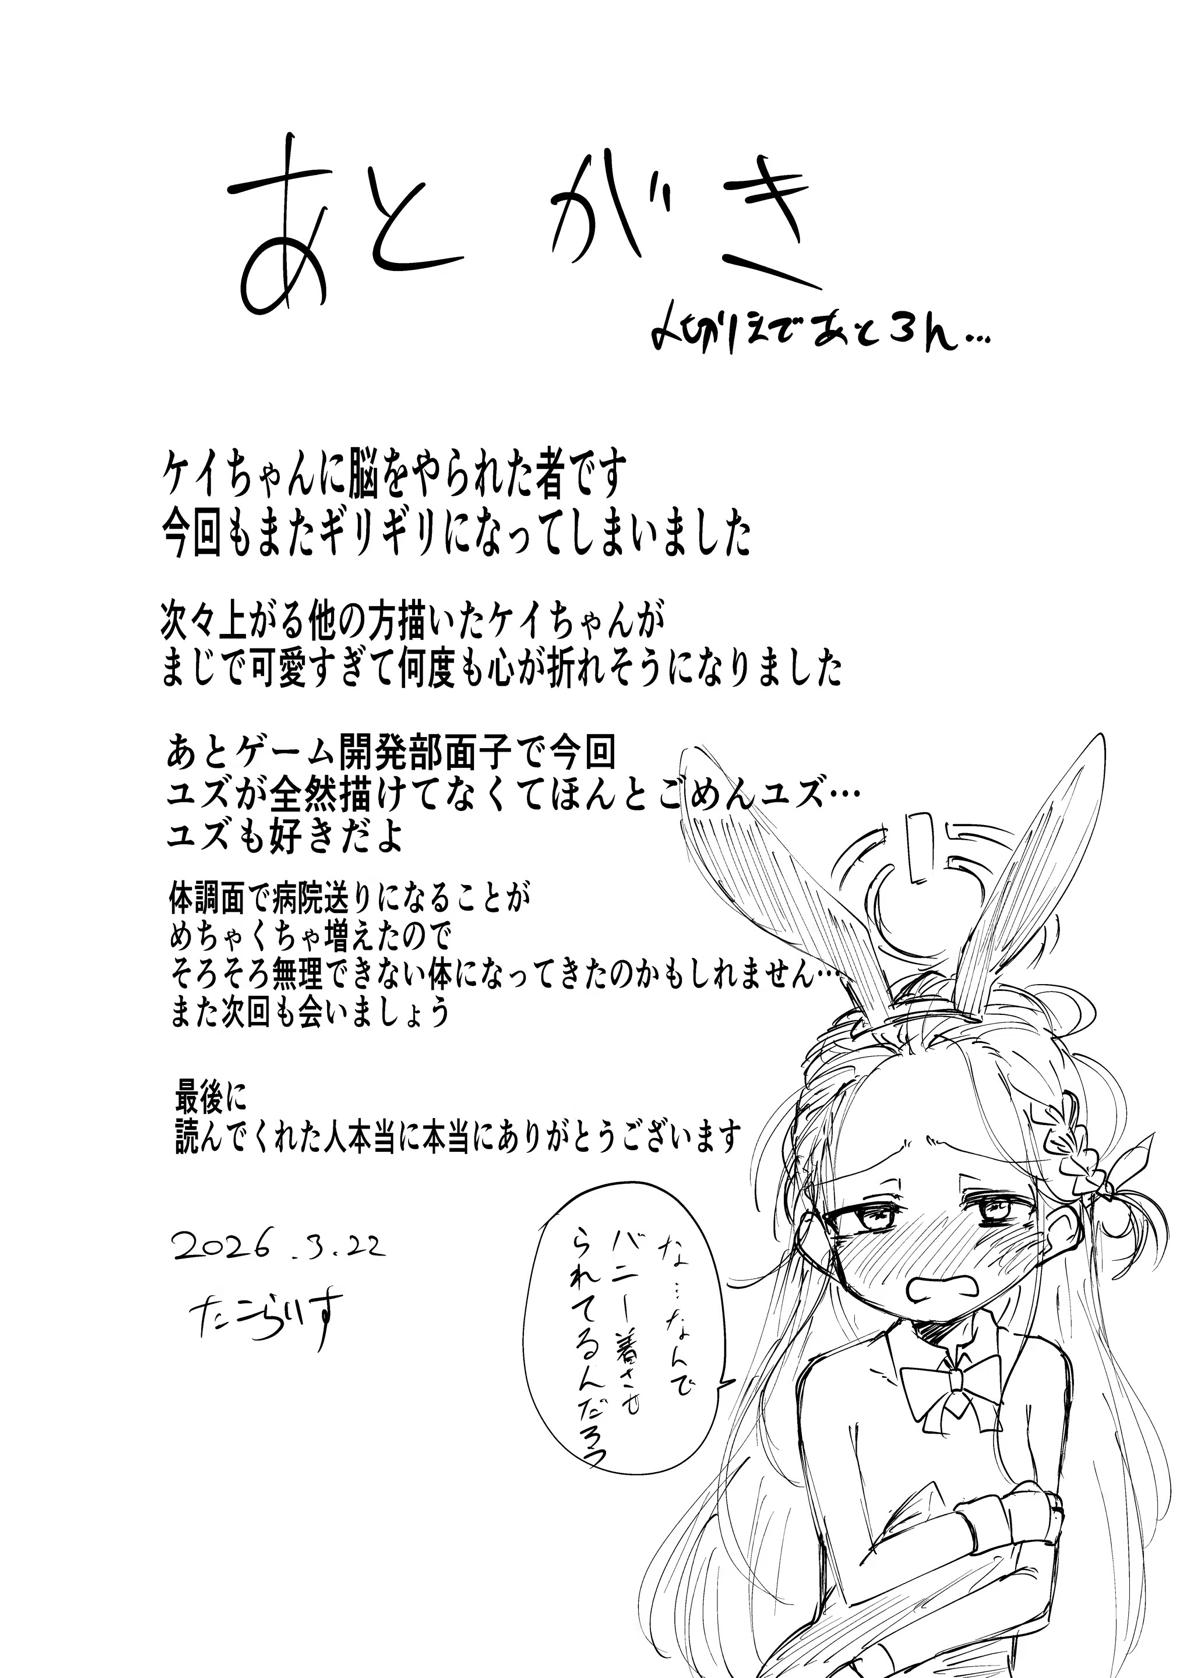 あとがき
〆切りまであと3h…
ケイちゃんに脳をやられた者です
今回もまたギリギリになってしまいました
次々上がる他の方描いたケイちゃんが
まじで可愛すぎて何度も心が折れそうになりました
あとゲーム開発部面子で今回
ユズが全然描けてなくてほんとごめんユズ…
ユズも好きだよ
体調面で病院送りになることが
めちゃくちゃ増えたので
そろそろ無理できない体になってきたのかもしれません…
また次回も会いましょう
最後に
読んでくれた人本当に本当にありがとうございます
2026.3.22
たこらいす
な…なんで
バニー着させ
られてるんだろう